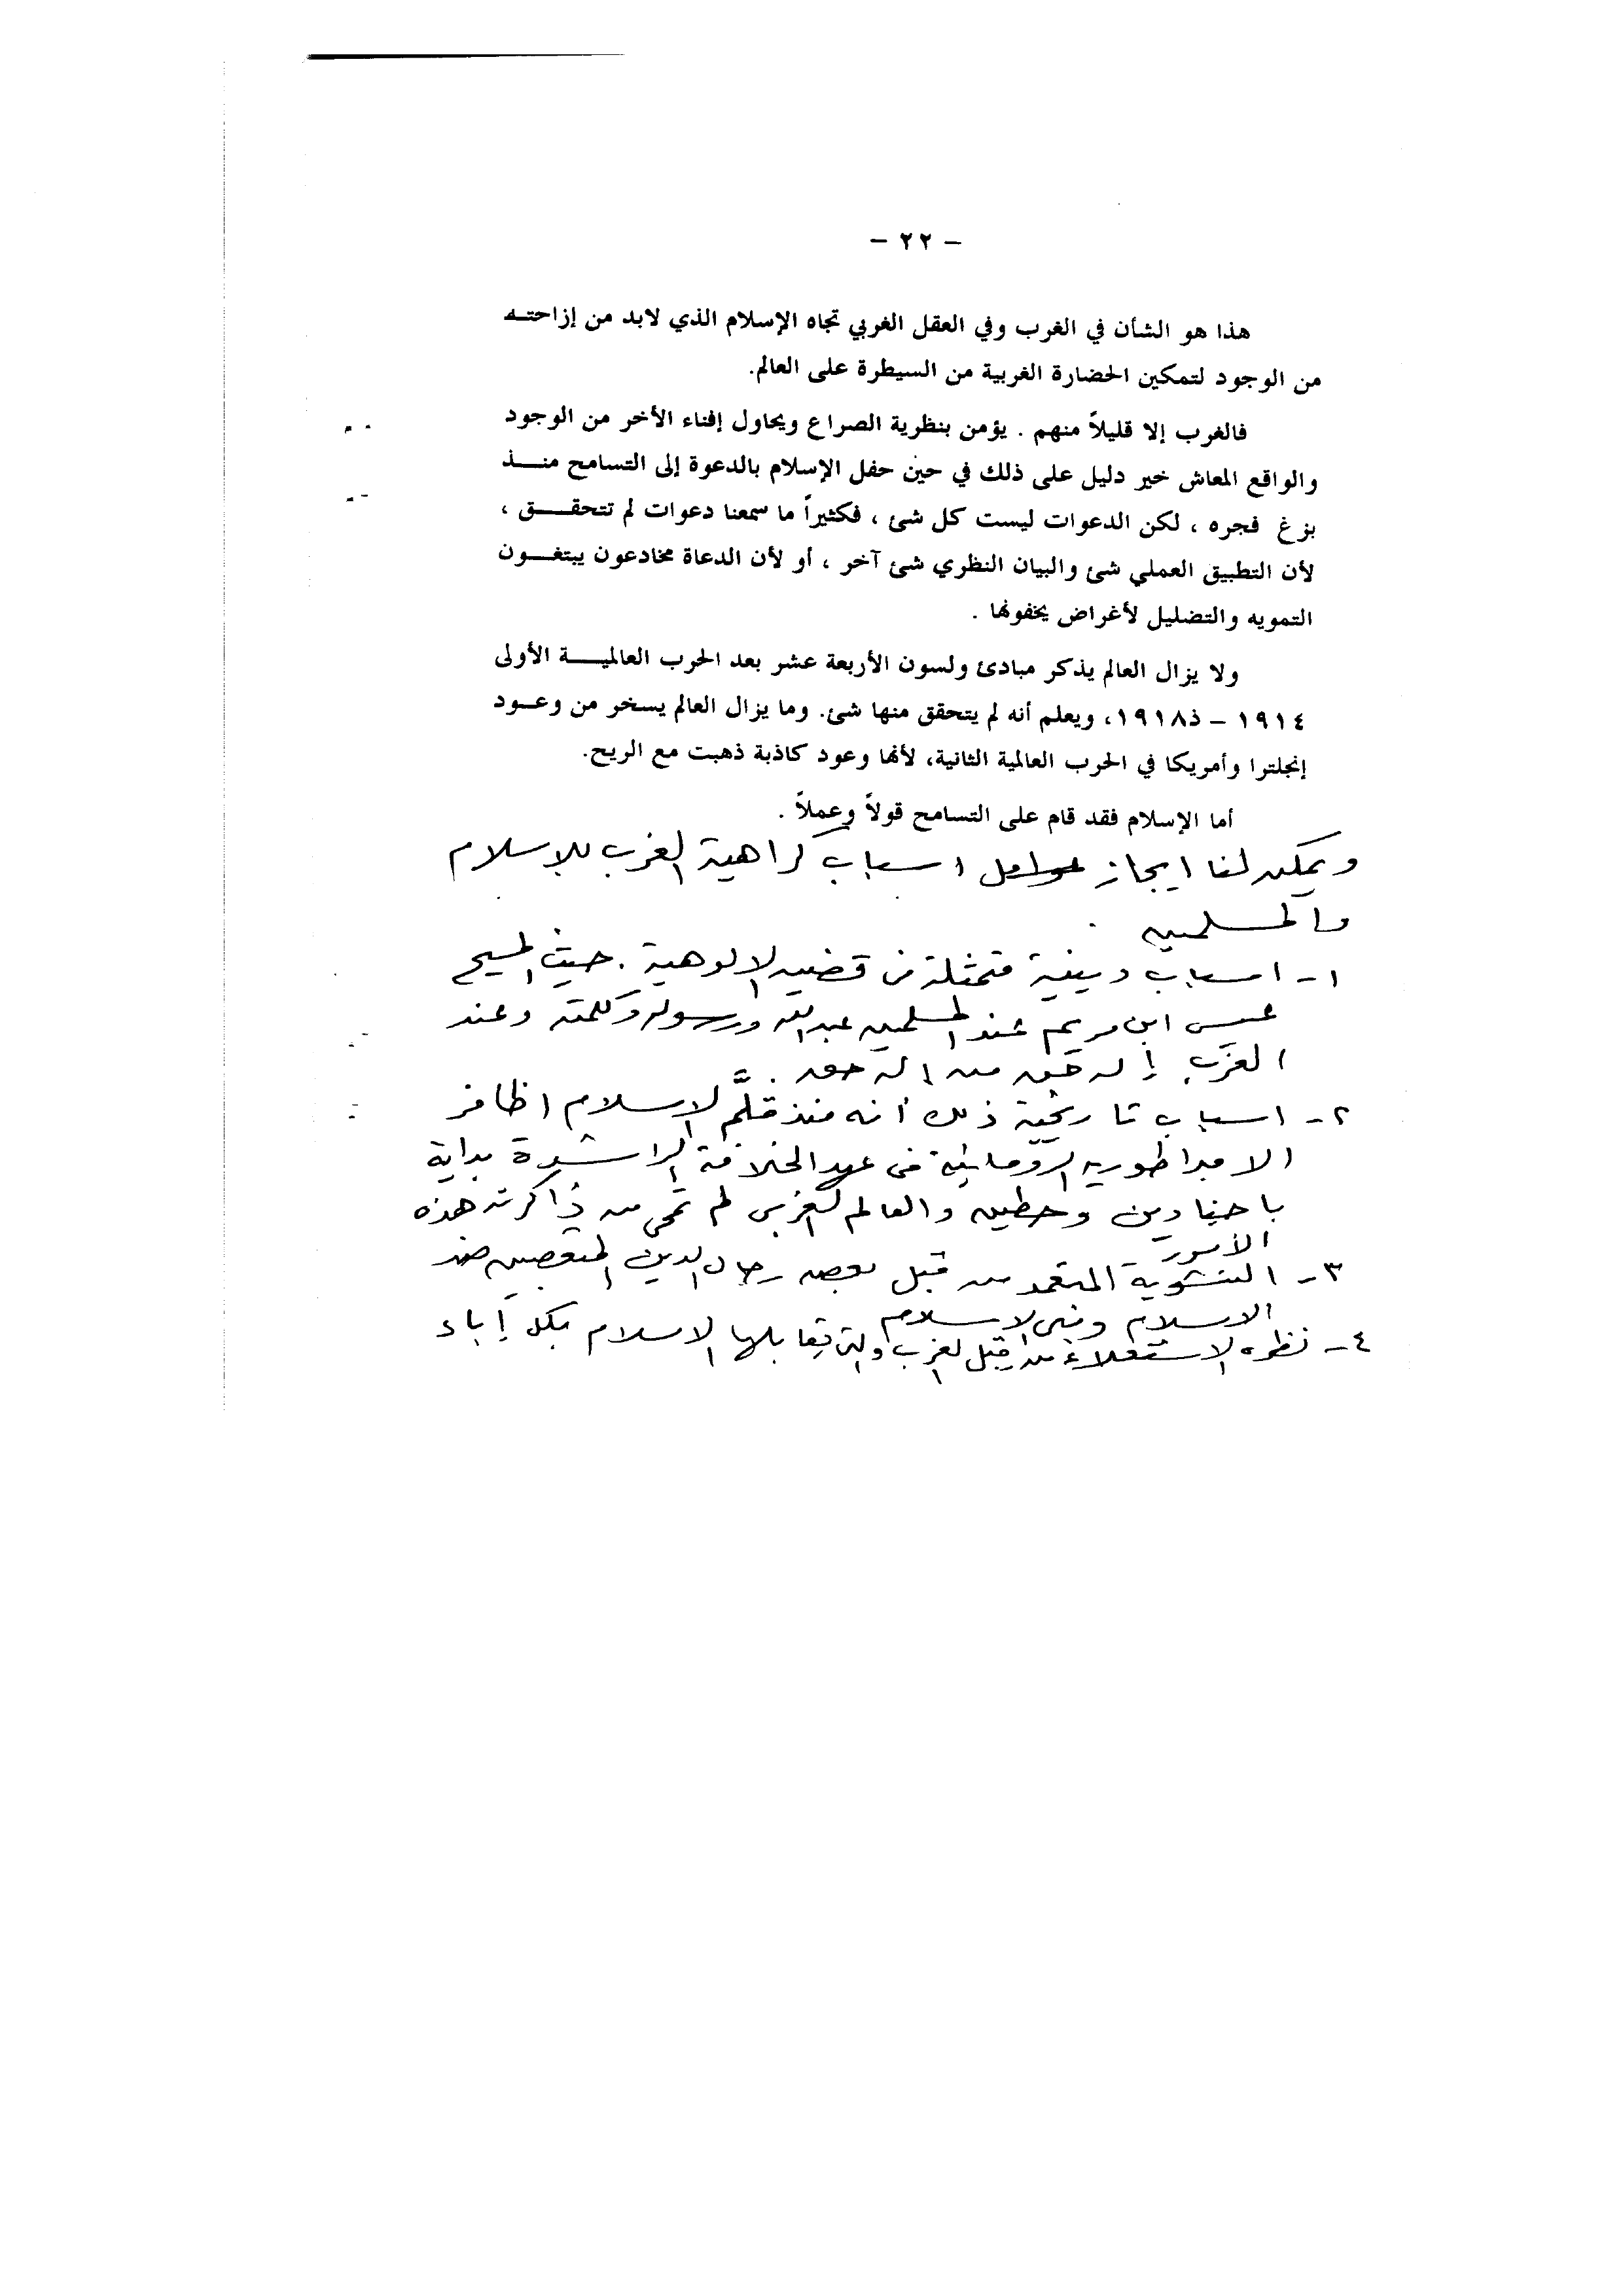 - ٢٢ -
هذا هو الشأن في الغرب وفي العقل الغربي تجاه الإسلام الذي لابد من إزاحتـه
من الوجود لتمكين الحضارة الغربية من السيطرة على العالم.
فالغرب إلا قليلاً منهم . يؤمن بنظرية الصراع ويحاول إفناء الأخر من الوجود
والواقع المعاش خير دليل على ذلك في حين حفل الإسلام بالدعوة إلى التسامح منــذ
بزغ فجره ، لكن الدعوات ليست كل شئ ، فكثيراً ما سمعنا دعوات لم تتحقــق ،
لأن التطبيق العملي شئ والبيان النظري شئ آخر ، أو لأن الدعاة مخادعون يبتغــون
التمويه والتضليل لأغراض يخفونها .
ولا يزال العالم يذكر مبادئ ولسون الأربعة عشر بعد الحرب العالميــة الأولى
١٩١٤ - ذ١٩١٨، ويعلم أنه لم يتحقق منها شئ. وما يزال العالم يسخر من وعـود
إنجلترا وأمريكا في الحرب العالمية الثانية، لأنها وعود كاذبة ذهبت مع الريح.
أما الإسلام فقد قام على التسامح قولاً وعملاً .
ويمكن لنا ايجاز عوامل اسباب كراهية الغرب للإسلام
والمسلمين .
١- اسباب دينية متمثلة فى قضيه الالوهية . حيث المسيح
عيسى ابن مريم عند المسلمين عبد الله ورسوله وكلمته وعند
الغرب إله حق من إله حق .
٢- اسباب تاريخية ذلك أنه منذ قلَّم الاسلام اظافر
الامبراطوريه الرومانية فى عهد الخلافة الراشدة بداية
باجنادين وحطين والعالم الغربى لم تمحى من ذاكرته هذه
الأمور
٣- التشويه المتعمد من قبل بعض رجال الدين المتعصبين ضد
الاسلام ونبى الاسلام
٤- نظره الاستعلاء من قبل الغرب والتى يقابلها الاسلام بكل إباء